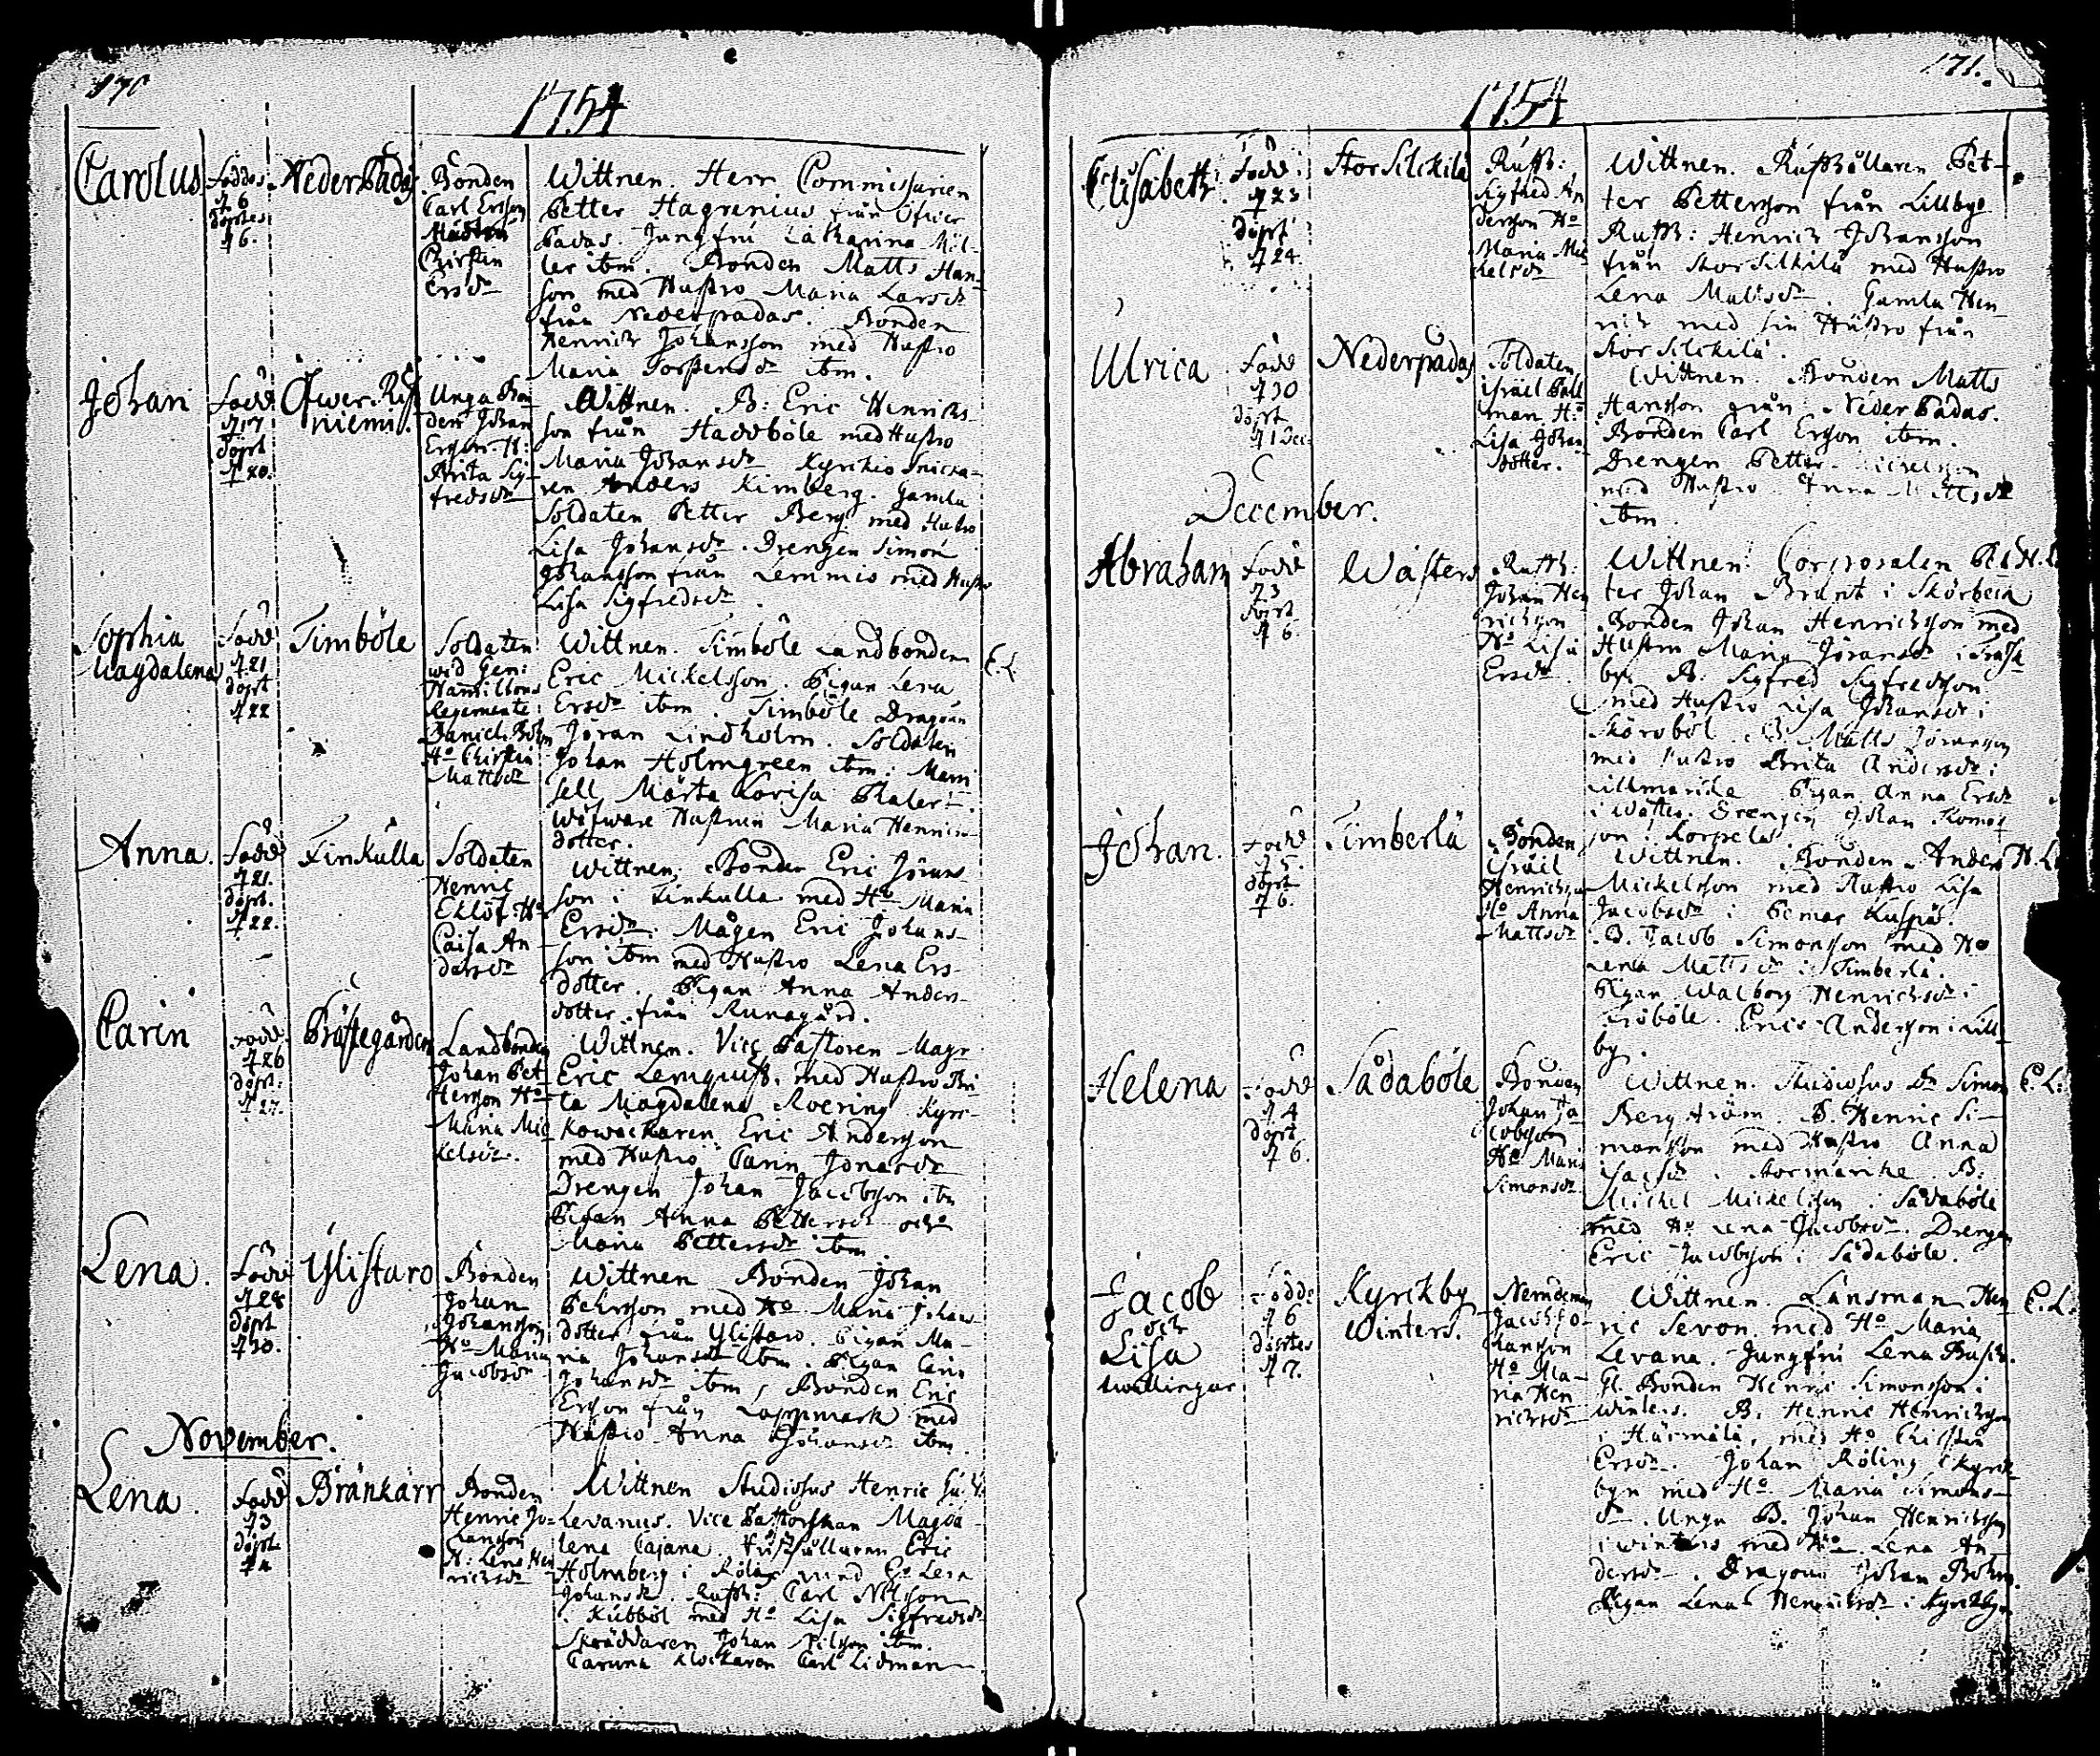 170
1754
Carolus
Föddes
d 6
döptes
d 6.
NederPadas
Bonden
Carl Ersson
Hustru
Chirstin
Ersdr
Wittnen. Herr Commissarien
Petter Hagrenius från Öfwer
Padas. Jungfru Catharina Mil-
ler ibm. Bonden Matts Han-
son med Hustro Maria Larsdr
från Nederpadas. Bonden
Henrich Johansson med Hustro
Maria ibm.
Johan
Född
d 17
döpt
d 20.
Öfwer Kis
niemi.
Unga Bon
den Johan
Ersson. H:
Brita Sig-
fredsdr
Wittnen. B: Eric Henrichs
son från Haddböle med Hustro
Maria Johansdr Kyrckio Snicka-
ren Anders Kimberg. Gamla
Soldaten Petter Berg med Hustro
Lisa Johansdr. Drengen Simon
Johansson från Lemmis med Hustro
Lisa Sigfredsdr
Sophia
Magdalena
Född
d 21
döpt
d 22
Timböle
Soldaten
wid Gen:
Hamiltons
Regemente:
Daniel Böhm
Ho Chirstin
Mattsdr
Wittnen. Timböle Landbonden
Eric Mickelsson. Pigan Lena
Ersdr ibm. Timböle Dragoun
Jöran Lindholm. Soldaten
Johan Holmgreen ibm: Mam
sell Märta Lovisa
Wäfware Hustrun Maria Henrics
dotter.
E. L
Anna.
Född
d 21.
döpt.
d 22.
Finkulla
Soldaten
Henric
Eklöf. Ho
Caisa An
dersdr
Wittnen. Bonden Eric Jörans
son i Finkulla med Ho Maria
Ersdr. Mågen Eric Johans-
son ibm med Hustro Lena Ers-
dotter. Pigan Anna Anders-
dotter från Runagård.
Carin
Född
d 26
döpt.
d 27.
Prästegården
Landbonden
Johan Pet-
tersson Ho
Maria Mic
kelsdr.
Wittnen. Vice Pastoren Magr
Eric Lenquist. med Hustro Bri
ta Magdalena Roering Kyr-
Eric Andersson
med Hustro Carin Jonasdr
Drengen Johan Jacobsson ibm
Pigan Anna Pettersdr och
Maria Pettersdr ibm.
Lena.
Född
d 28
döpt
d 30.
Ylistaro
Bonden
Johan
Johansson
Ho Maria
Jacobsdr
Wittnen Bonden Johan
Pehrsson med Ho Maria Johans
dotter från Ylistaro. Pigan Ma-
ria Johansdr ibm. Pigan Carin
Johansdr ibm, Bonden Eric
Ersson från Lappmark med
Hustro Anna Johansdr ibm.
November.
Lena.
Född
d 3
döpt
d 4
Bränkärr
Bonden
Henric Jo-
hansson
H: Lena Hen
richsdr
Wittnen Studiosus Henric
Levanus. Vice Pastorskan Magda
lena Cajana. Rusthållaren Eric
Holmberg i med Ho Lena
Johansdr. Rusth: Carl Nilsson
i Kubböl med Ho Lisa Sigfredsdr
Skräddaren Johan Nilsson ibm.
Caruna klockaren Carl Lidman
171.
1754
Elisabeth
Född:
d 23
döpt
d 24.
Stor Silckilä
Rusth:
Sigfred An
dersson Ho
Maria Mic
kelsdr
Wittnen. Rusthållaren Pet-
ter Pettersson från Lillby.
Rusth: Henrich Johansson
från Stor Silckilä med Hustro
Lena Mattsdr. Gamla Hen
rich med sin Hustro från
Stor Silckilä.
Ulrica
Född
d 30
döpt
d 1 Dec.
Nederpadas
Soldaten
Israel Pall
man H:
Lisa Johans
dotter.
Wittnen. Bonden Matts
Hansson från Neder Padas.
Bonden Carl Ersson ibm.
Drengen Petter Mickelsson
med Hustro Anna Mattsdr
ibm.
December.
Abraham
Född
d 3
döpt
d 6
Wästers
Rusth:
Johan Hen
richsson
Ho Lisa
Ersdr
Wittnen. Corporalen Pet
ter Johan Brunt i
Bonden Johan Henrichsson med
Hustru Maria Göransdr i
by. B. Sigfred Sigfredsson
med Hustro Lisa Johansdr i
B. Matts Göransson
med Hustro Brita Andersdr i
Lillmanike Pigan Anna Ersdr
i Wästers. Drengen Johan
son i Korpela
H. L
Johan.
Född
d 5.
döpt
d 6.
Timberlä
Bonden
Israel
Henrichsson
Ho Anna
Mattsdr
Wittnen. Bonden Anders
Mickelsson med Hustro Lisa
Jacobsdr i Pemar
B. Jacob Simonsson med Ho
Lena Mattsdr i Timberlä.
Pigan Walborg Henrichsdr i
Eric Andersson i Lill
by.
H. L.
Helena
Född
d 4
döpt
d 6.
Sådaböle
Bonden
Johan Ja
cobsson
Ho Maria
Simonsdr
Wittnen. Studiosus Dr Simon
Bergström. B. Henric Si-
monsson med Hustro Anna
Isacsdr i Stormanike B:
Michel Mickelsson i Sådaböle
med Ho Lena Jacobsdr. Drengen
Eric Jacobsson i Sådaböle.
E. L.
Jacob
och
Lisa
twillingar
Födde
d 6
döptes
d 7.
Kyrckby
Winters.
Nemdeman
Jacob Jo-
hansson
Ho Ma-
ria Hen
richsdr
Wittnen. Länsman Hen
ric Sevon med Ho Maria
Levana. Jungfru Lena
Gl. Bonden Henric Simonsson i
Winters. B. Henric Henrichsson
i Härmälä, med Ho Chirstin
Ersdr. Johan Röling i Kyrk-
byn med Ho Maria Simons-
dr. Unga B. Johan Henrichsson
i Winters med Ho Lena An-
dersdr. Dragoun Johan Böhm.
Pigan Lena Henrichsdr i Kyrckbyn
E. L.